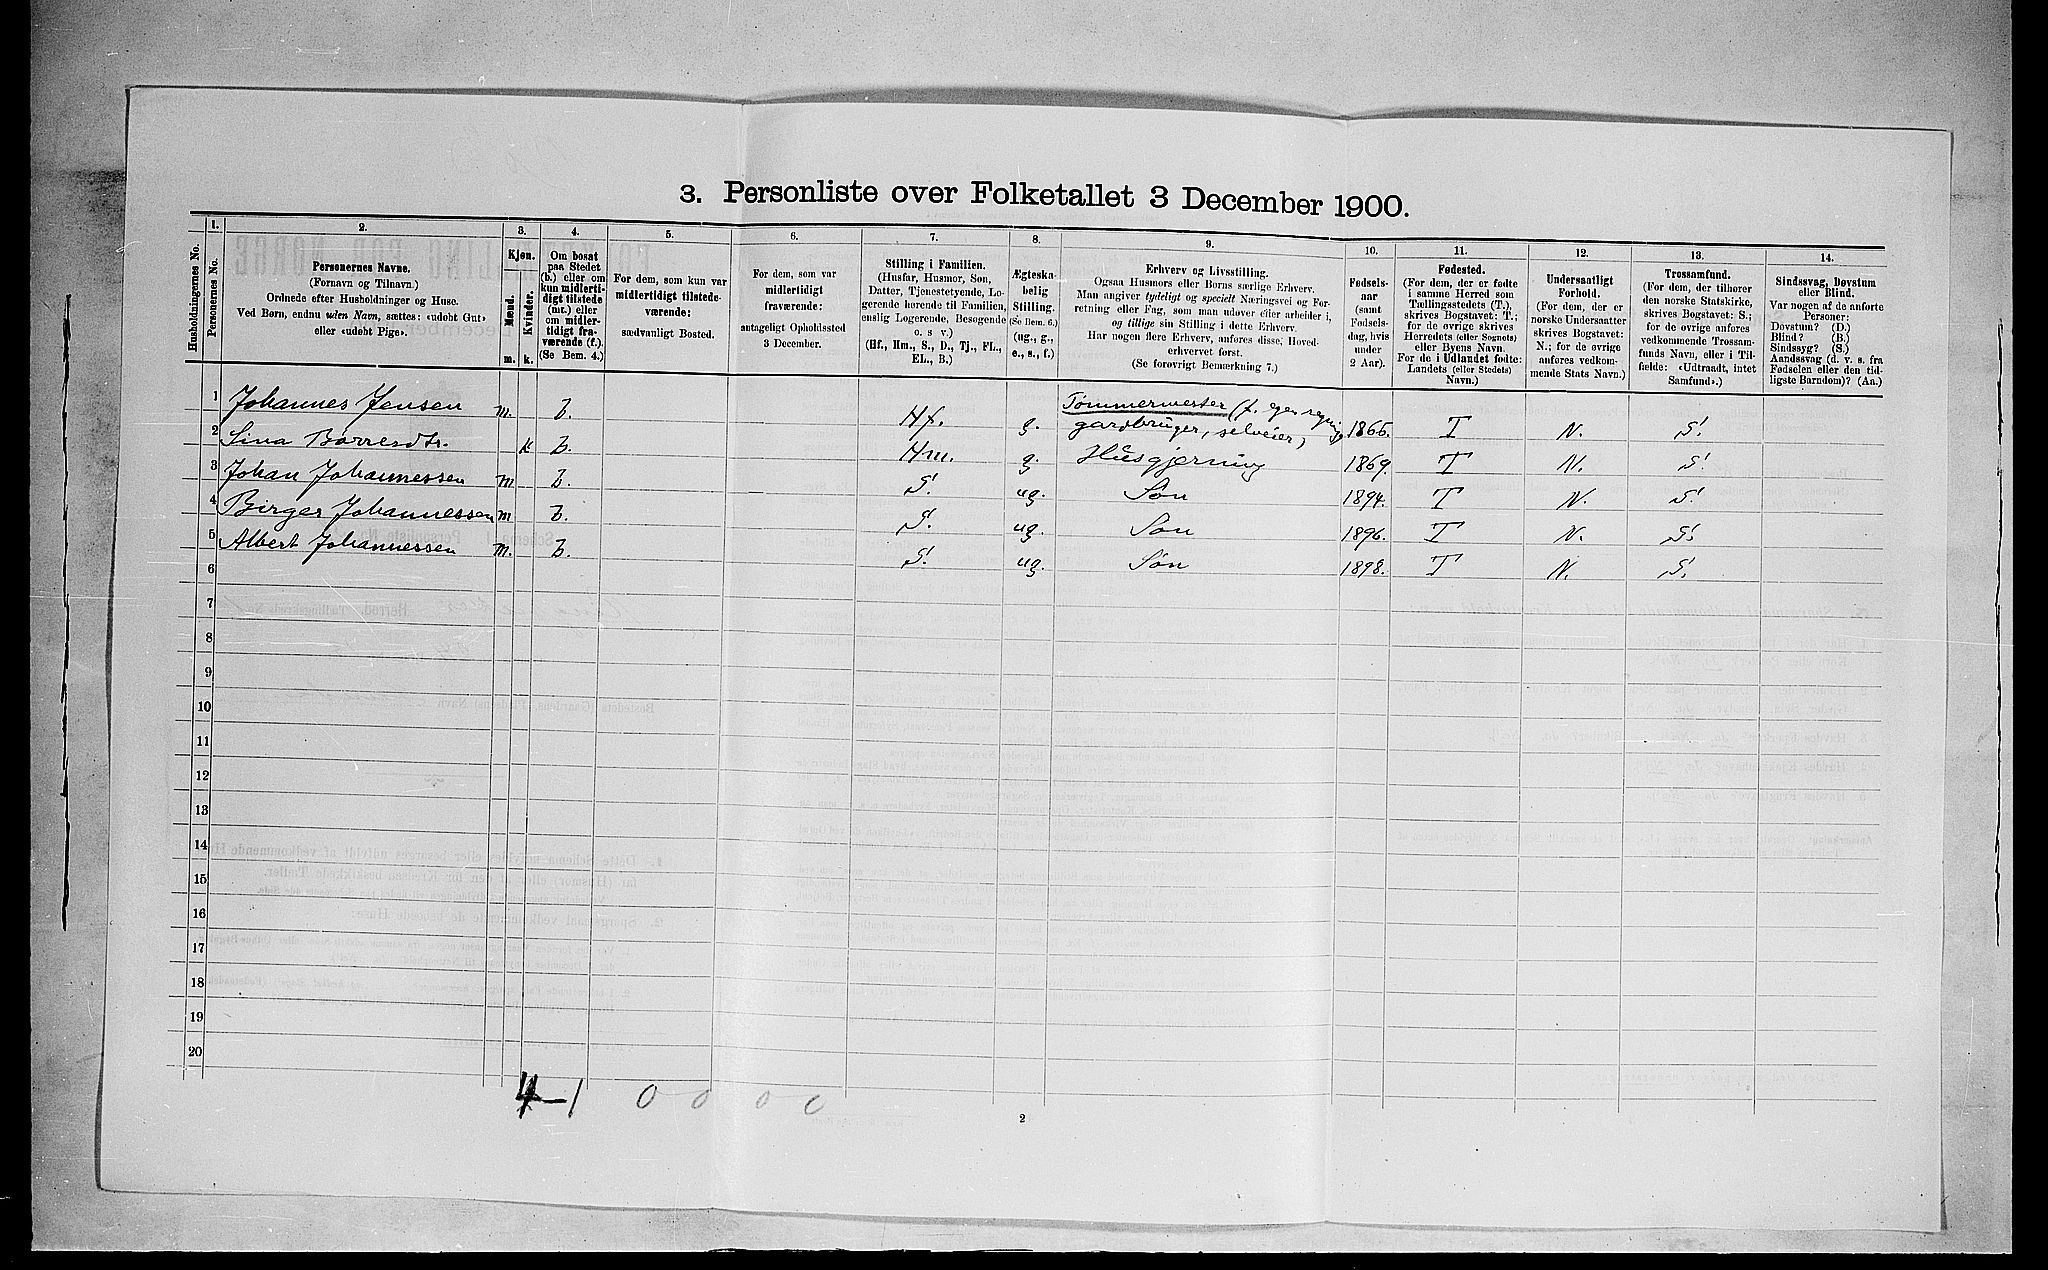 3. Personliste over Folketallet 3 December 1900.
Husholdningernes No.
1.
Personernes No.
2.
Personernes Navne.
(Fornavn og Tilnavn.)
Ordnede efter Husholdninger og Huse.
Ved Børn, endnu uden Navn, sættes: «udøbt Gut»
eller «udøbt Pige».
3.
Kjøn.
Mænd.
Kvinder.
m. k.
4.
Om bosat
paa Stedet
(b.) eller om
kun midlerti-
digt tilstede
(mt.) eller
om midler-
tidigt fra-
værende (f.).
(Se Bem. 4.)
5.
For dem, som kun var
midlertidigt tilstede-
værende:
sædvanligt Bosted.
6.
For dem, som var
midlertidigt
fraværende:
antageligt Opholdssted
3 December.
7.
Stilling i Familien.
(Husfar, Husmor, Søn,
Datter, Tjenestetyende, Lo-
gerende hørende til Familien,
enslig Logerende, Besøgende
o. s v.)
(Hf., Hm., S., D., Tj., FL.,
EL., B.)
8.
Ægteska-
belig
Stilling.
(Se Bem. 6.)
(ug., g.,
e., s., f.)
9.
Erhverv og Livsstilling.
Ogsaa Husmors eller Børns særlige Erhverv.
Man angiver tydeligt og specielt Næringsvei og For-
retning eller Fag, som man udøver eller arbeider i,
og tillige sin Stilling i dette Erhverv.
Har nogen flere Erhverv, anføres disse, Hoved-
erhvervet først.
(Se forøvrigt Bemærkning 7.)
10.
Fødsels-
aar
(samt
Fødsels-
dag, hvis
under
2 Aar).
11.
Fødested.
(For dem, der er fødte
i samme Herred som
Tællingsstedets (T.),
skrives Bogstavet: T.;
for de øvrige skrives
Herredets (eller Sognets)
eller Byens Navn.
For de i Udlandet fødte:
Landets (eller Stedets)
Navn.)
12.
Undersaatligt
Forhold.
(For dem, der er
norske Undersaatter
skrives Bogstavet:
N.; for de øvrige
anføres vedkom-
mende Stats Navn.)
13.
Trossamfund.
(For dem, der tilhører
den norske Statskirke,
skrives Bogstavet: S.;
for de øvrige anføres
vedkommende Trossam-
funds Navn, eller i Til-
fælde: «Udtraadt, intet
Samfund».)
14.
Sindssvag, Døvstum
eller Blind.
Var nogen af de anførte
Personer:
Døvstum? (D.)
Blind? (B.)
Sindssyg? (S.)
Aandssvag (d. v. s. fra
Fødselen eller den tid-
ligste Barndom)? (Aa.)
1 Johannes Jensen m. b. Hf. g. Tømmermester (f. egen regning) gardbruger, selveier, 1865. T N. S.
2 Lina Børresdtr. k b. Hm. g. Husgjerning 1869. T N. S.
3 Johan Johannessen m b. S. ug. Søn 1894. T N. S.
4 Birger Johannessen m b. S. ug. Søn 1896. T N. S.
5 Albert Johannessen m. b. S. ug. Søn 1898. T N. S.
6
7
8
9
10
11
12
13
14
15
16
17
18
19
20
4-1 0 0 0 0
2